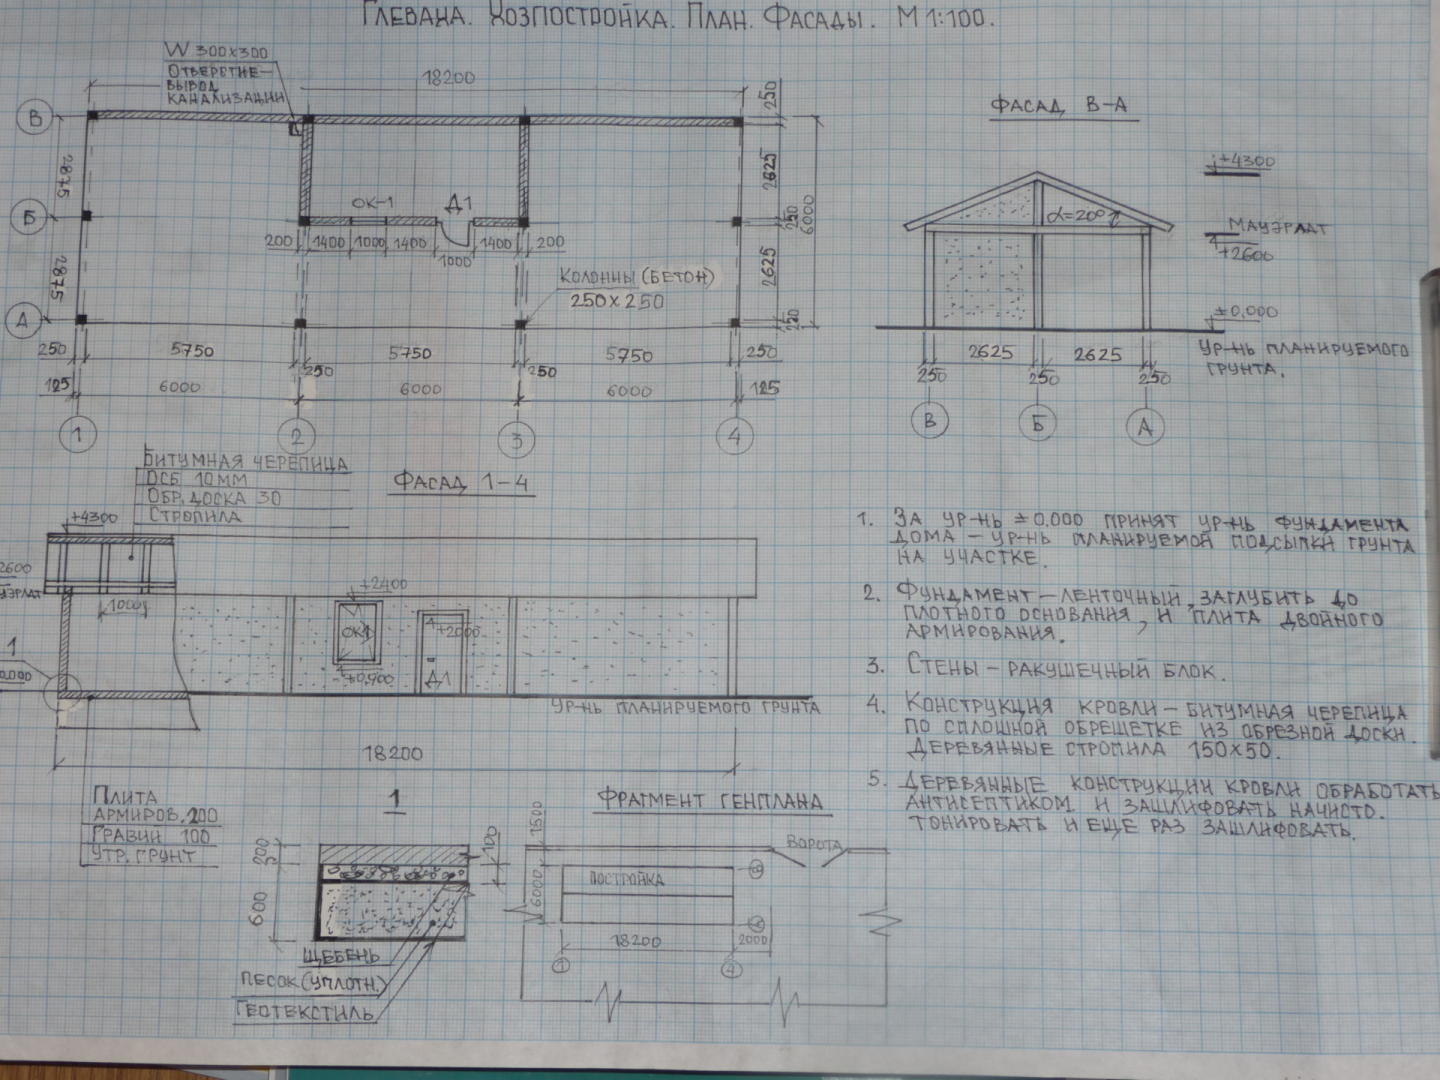 ГЛЕВАХА. ХОЗПОСТРОЙКА. ПЛАН. ФАСАДЫ. М 1:100.
W 300х300
ОТВЕРСТИЕ-
ВЫВОД
КАНАЛИЗАЦИИ
18200
250
В
2875
2625
6000
ОК-1
Д1
Б
250
200
1400
1000
1400
1000
1400
200
2875
КОЛОННЫ (БЕТОН)
250х250
2625
А
250
250
5750
250
5750
250
5750
250
125
6000
6000
6000
125
1
2
3
4
ФАСАД В-А
+4300
α=20°
МАУЭРЛАТ
+2600
±0,000
УР-НЬ ПЛАНИРУЕМОГО
ГРУНТА.
2625
2625
250
250
250
В
Б
А
БИТУМНАЯ ЧЕРЕПИЦА
ОСБ 10ММ
ОБР. ДОСКА 30
СТРОПИЛА
ФАСАД 1-4
+4300
2600
УЭРЛАТ
1000
+2400
ОК1
+0,900
+2000
Д1
1
0,000
УР-НЬ ПЛАНИРУЕМОГО ГРУНТА
18200
ПЛИТА
АРМИРОВ. 200
ГРАВИЙ 100
УТР. ГРУНТ
1
200
100
600
ЩЕБЕНЬ
ПЕСОК (УПЛОТН.)
ГЕОТЕКСТИЛЬ
ФРАГМЕНТ ГЕНПЛАНА
1500
ВОРОТА
ПОСТРОЙКА
6000
В
А
18200
2000
1
4
1. ЗА УР-НЬ ±0.000 ПРИНЯТ УР-НЬ ФУНДАМЕНТА
ДОМА – УР-НЬ ПЛАНИРУЕМОЙ ПОДСЫПКИ ГРУНТА
НА УЧАСТКЕ.
2. ФУНДАМЕНТ – ЛЕНТОЧНЫЙ, ЗАГЛУБИТЬ ДО
ПЛОТНОГО ОСНОВАНИЯ, И ПЛИТА ДВОЙНОГО
АРМИРОВАНИЯ.
3. СТЕНЫ – РАКУШЕЧНЫЙ БЛОК.
4. КОНСТРУКЦИЯ КРОВЛИ – БИТУМНАЯ ЧЕРЕПИЦА
ПО СПЛОШНОЙ ОБРЕШЕТКЕ ИЗ ОБРЕЗНОЙ ДОСКИ.
ДЕРЕВЯННЫЕ СТРОПИЛА 150х50.
5. ДЕРЕВЯННЫЕ КОНСТРУКЦИИ КРОВЛИ ОБРАБОТАТЬ
АНТИСЕПТИКОМ И ЗАШЛИФОВАТЬ НАЧИСТО.
ТОНИРОВАТЬ И ЕЩЕ РАЗ ЗАШЛИФОВАТЬ.